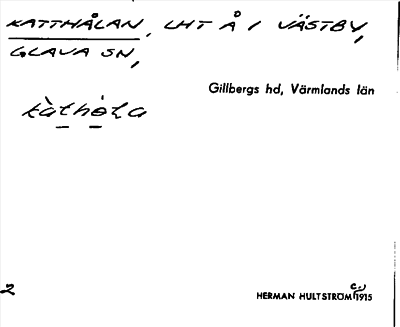 KATTHÅLAN, LHT Å I VÄSTBY,
GLAVA SN,
Gillbergs hd, Värmlands län
kàthòɽa
2
HERMAN HULTSTRÖM 1915